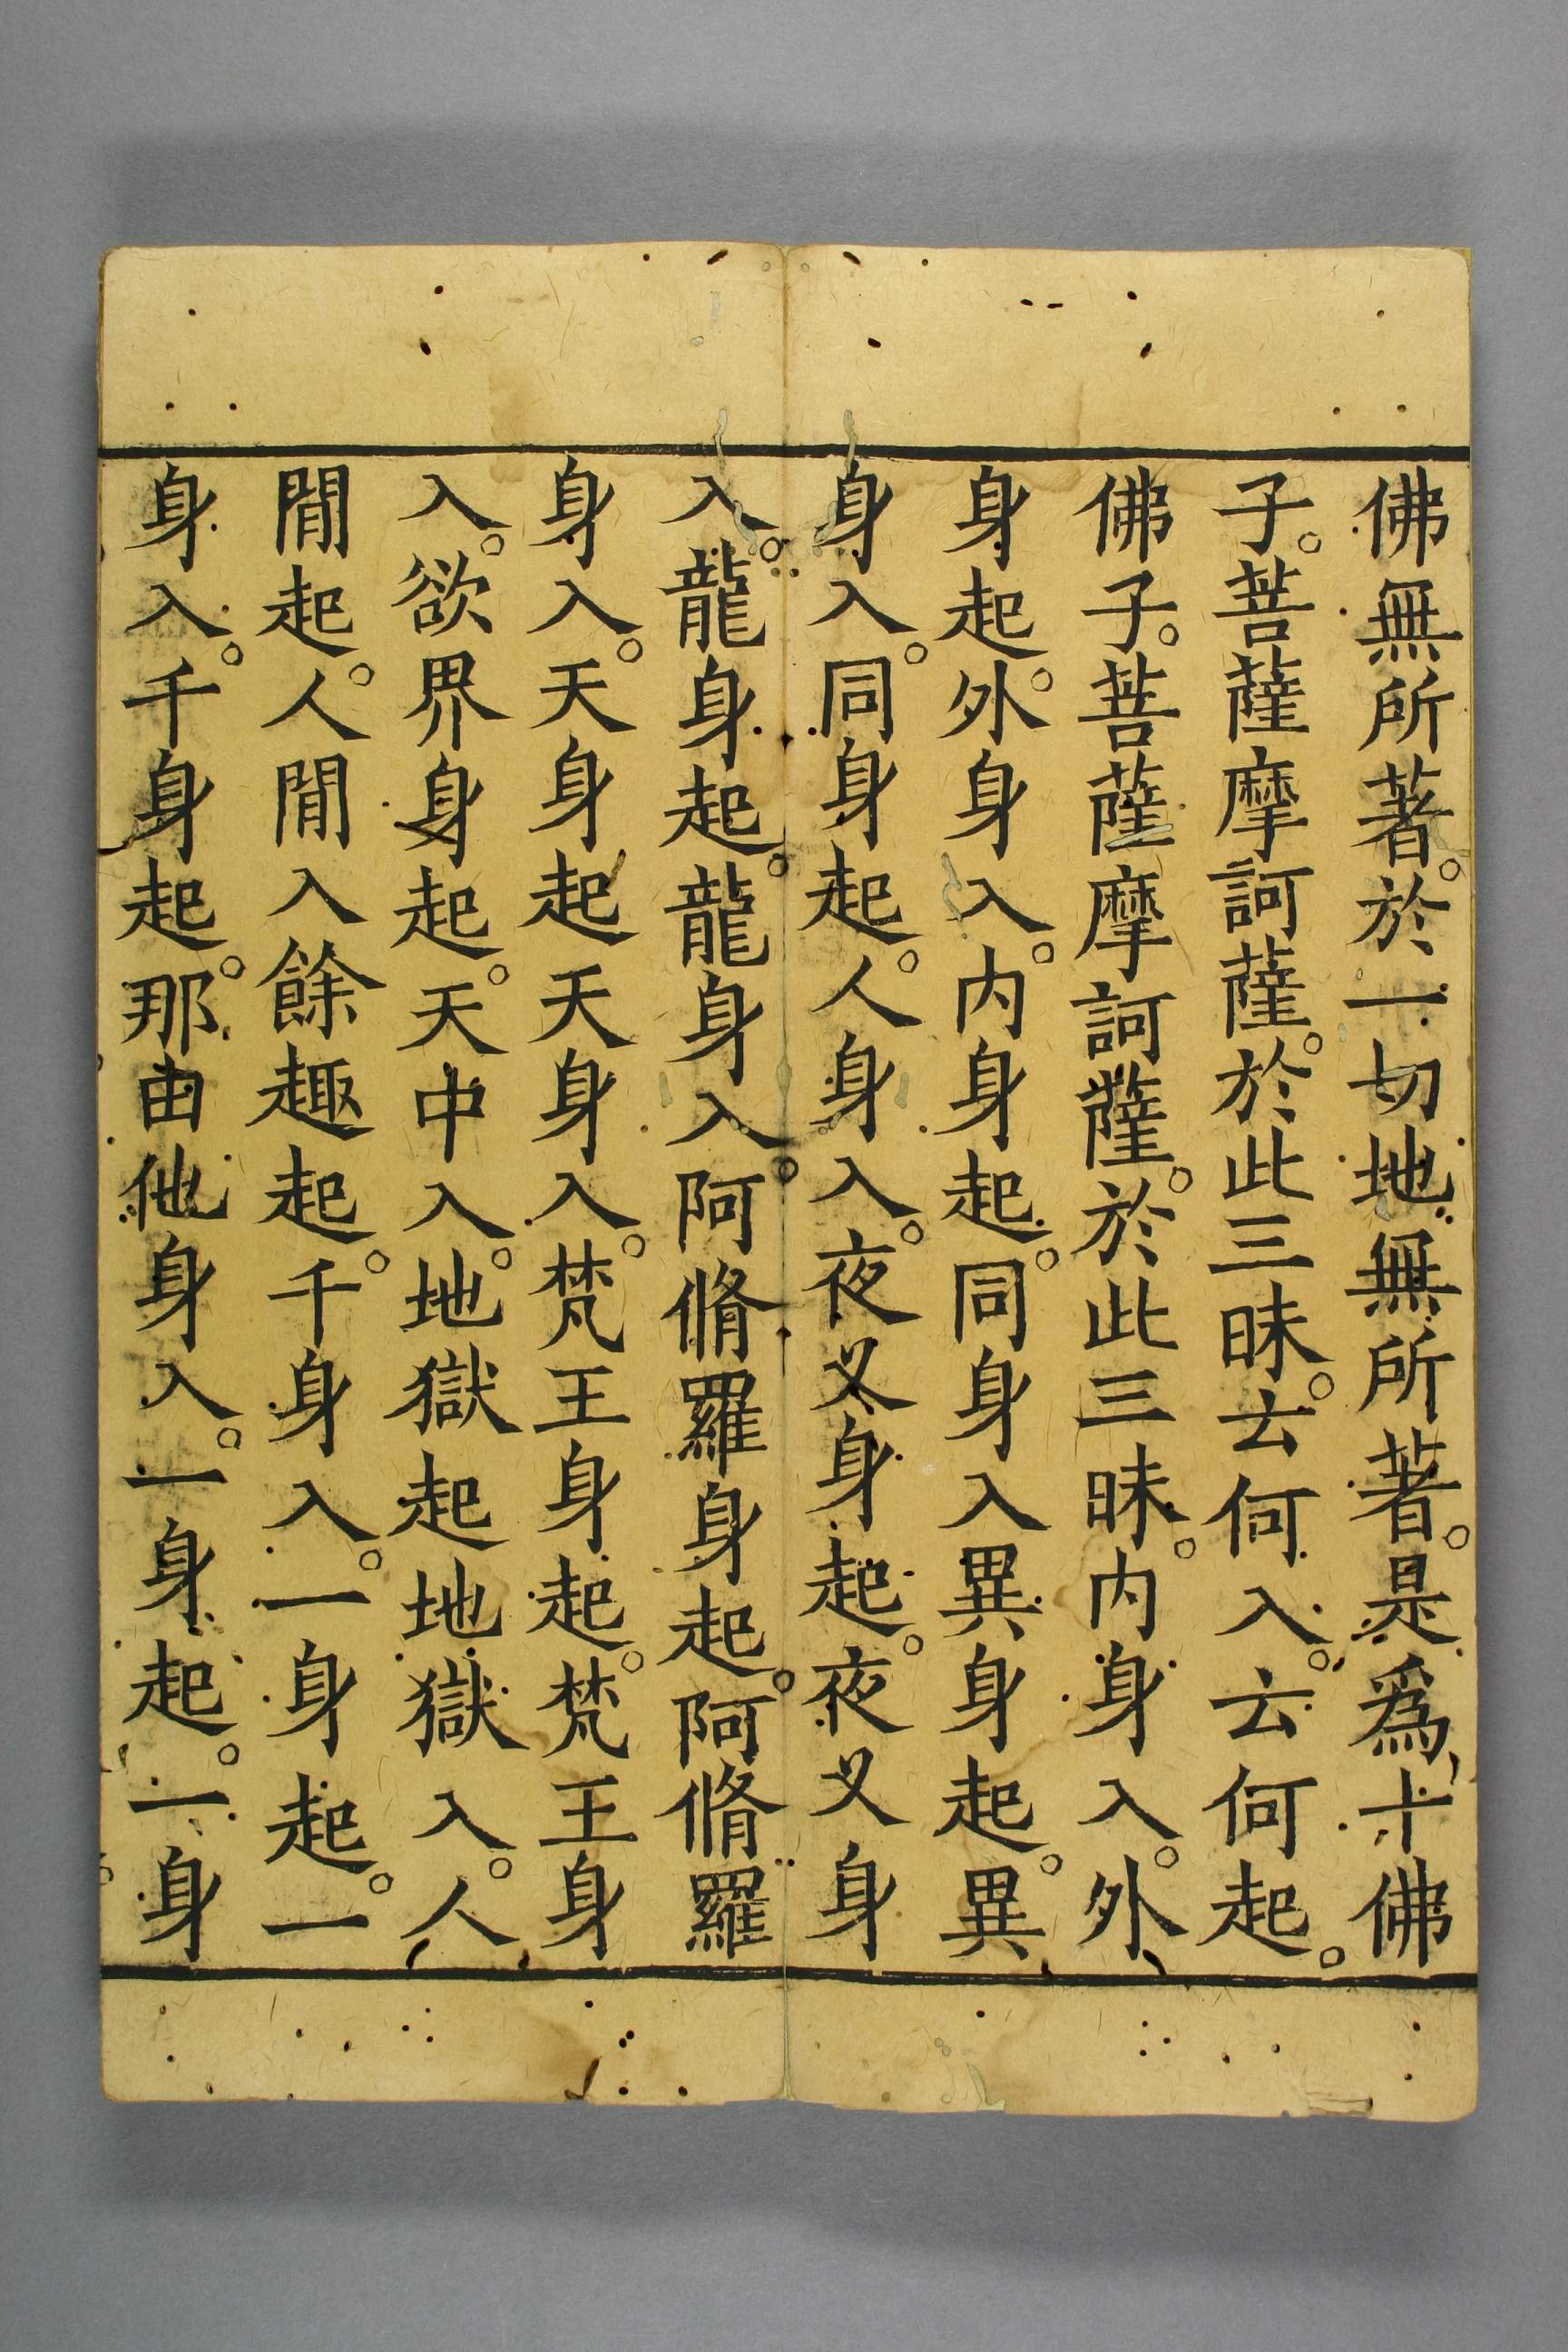 佛無所著。於一切地無所著。是爲十佛
子。菩薩摩訶薩。於此三昧。云何入。云何起。
佛子。菩薩摩訶薩。於此三昧。内身入。外
身起。外身入。内身起。同身入異身起。異
身入。同身起。人身入。夜叉身起。夜叉身
入。龍身起。龍身入。阿脩羅身起。阿脩羅
身入。天身起天身入。梵王身起。梵王身
入。欲界身起。天中入。地獄起地獄入。人
閒起。人閒入餘趣起。千身入。一身起。一
身入。千身起。那由他身入。一身起。一身